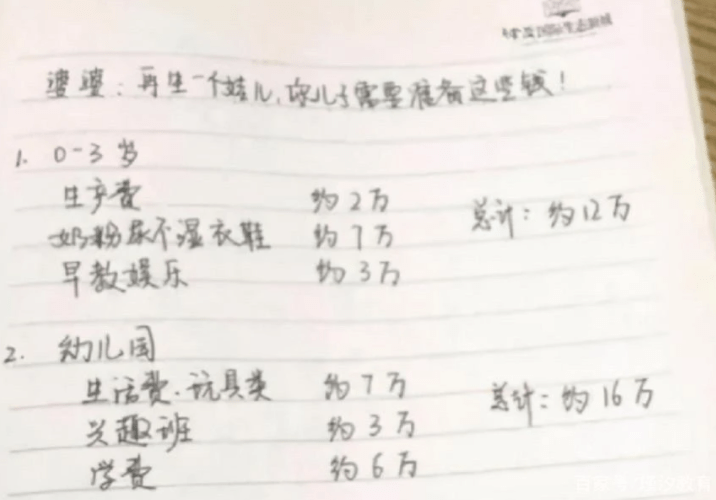 婆婆：再生一个娃儿，你儿子需要准备这些钱！
1. 0-3岁
生产费 约2万 总计：约12万
奶粉尿不湿衣鞋 约7万
早教娱乐 约3万
2. 幼儿园
生活费·玩具类 约7万 总计：约16万
兴趣班 约3万
学费 约6万